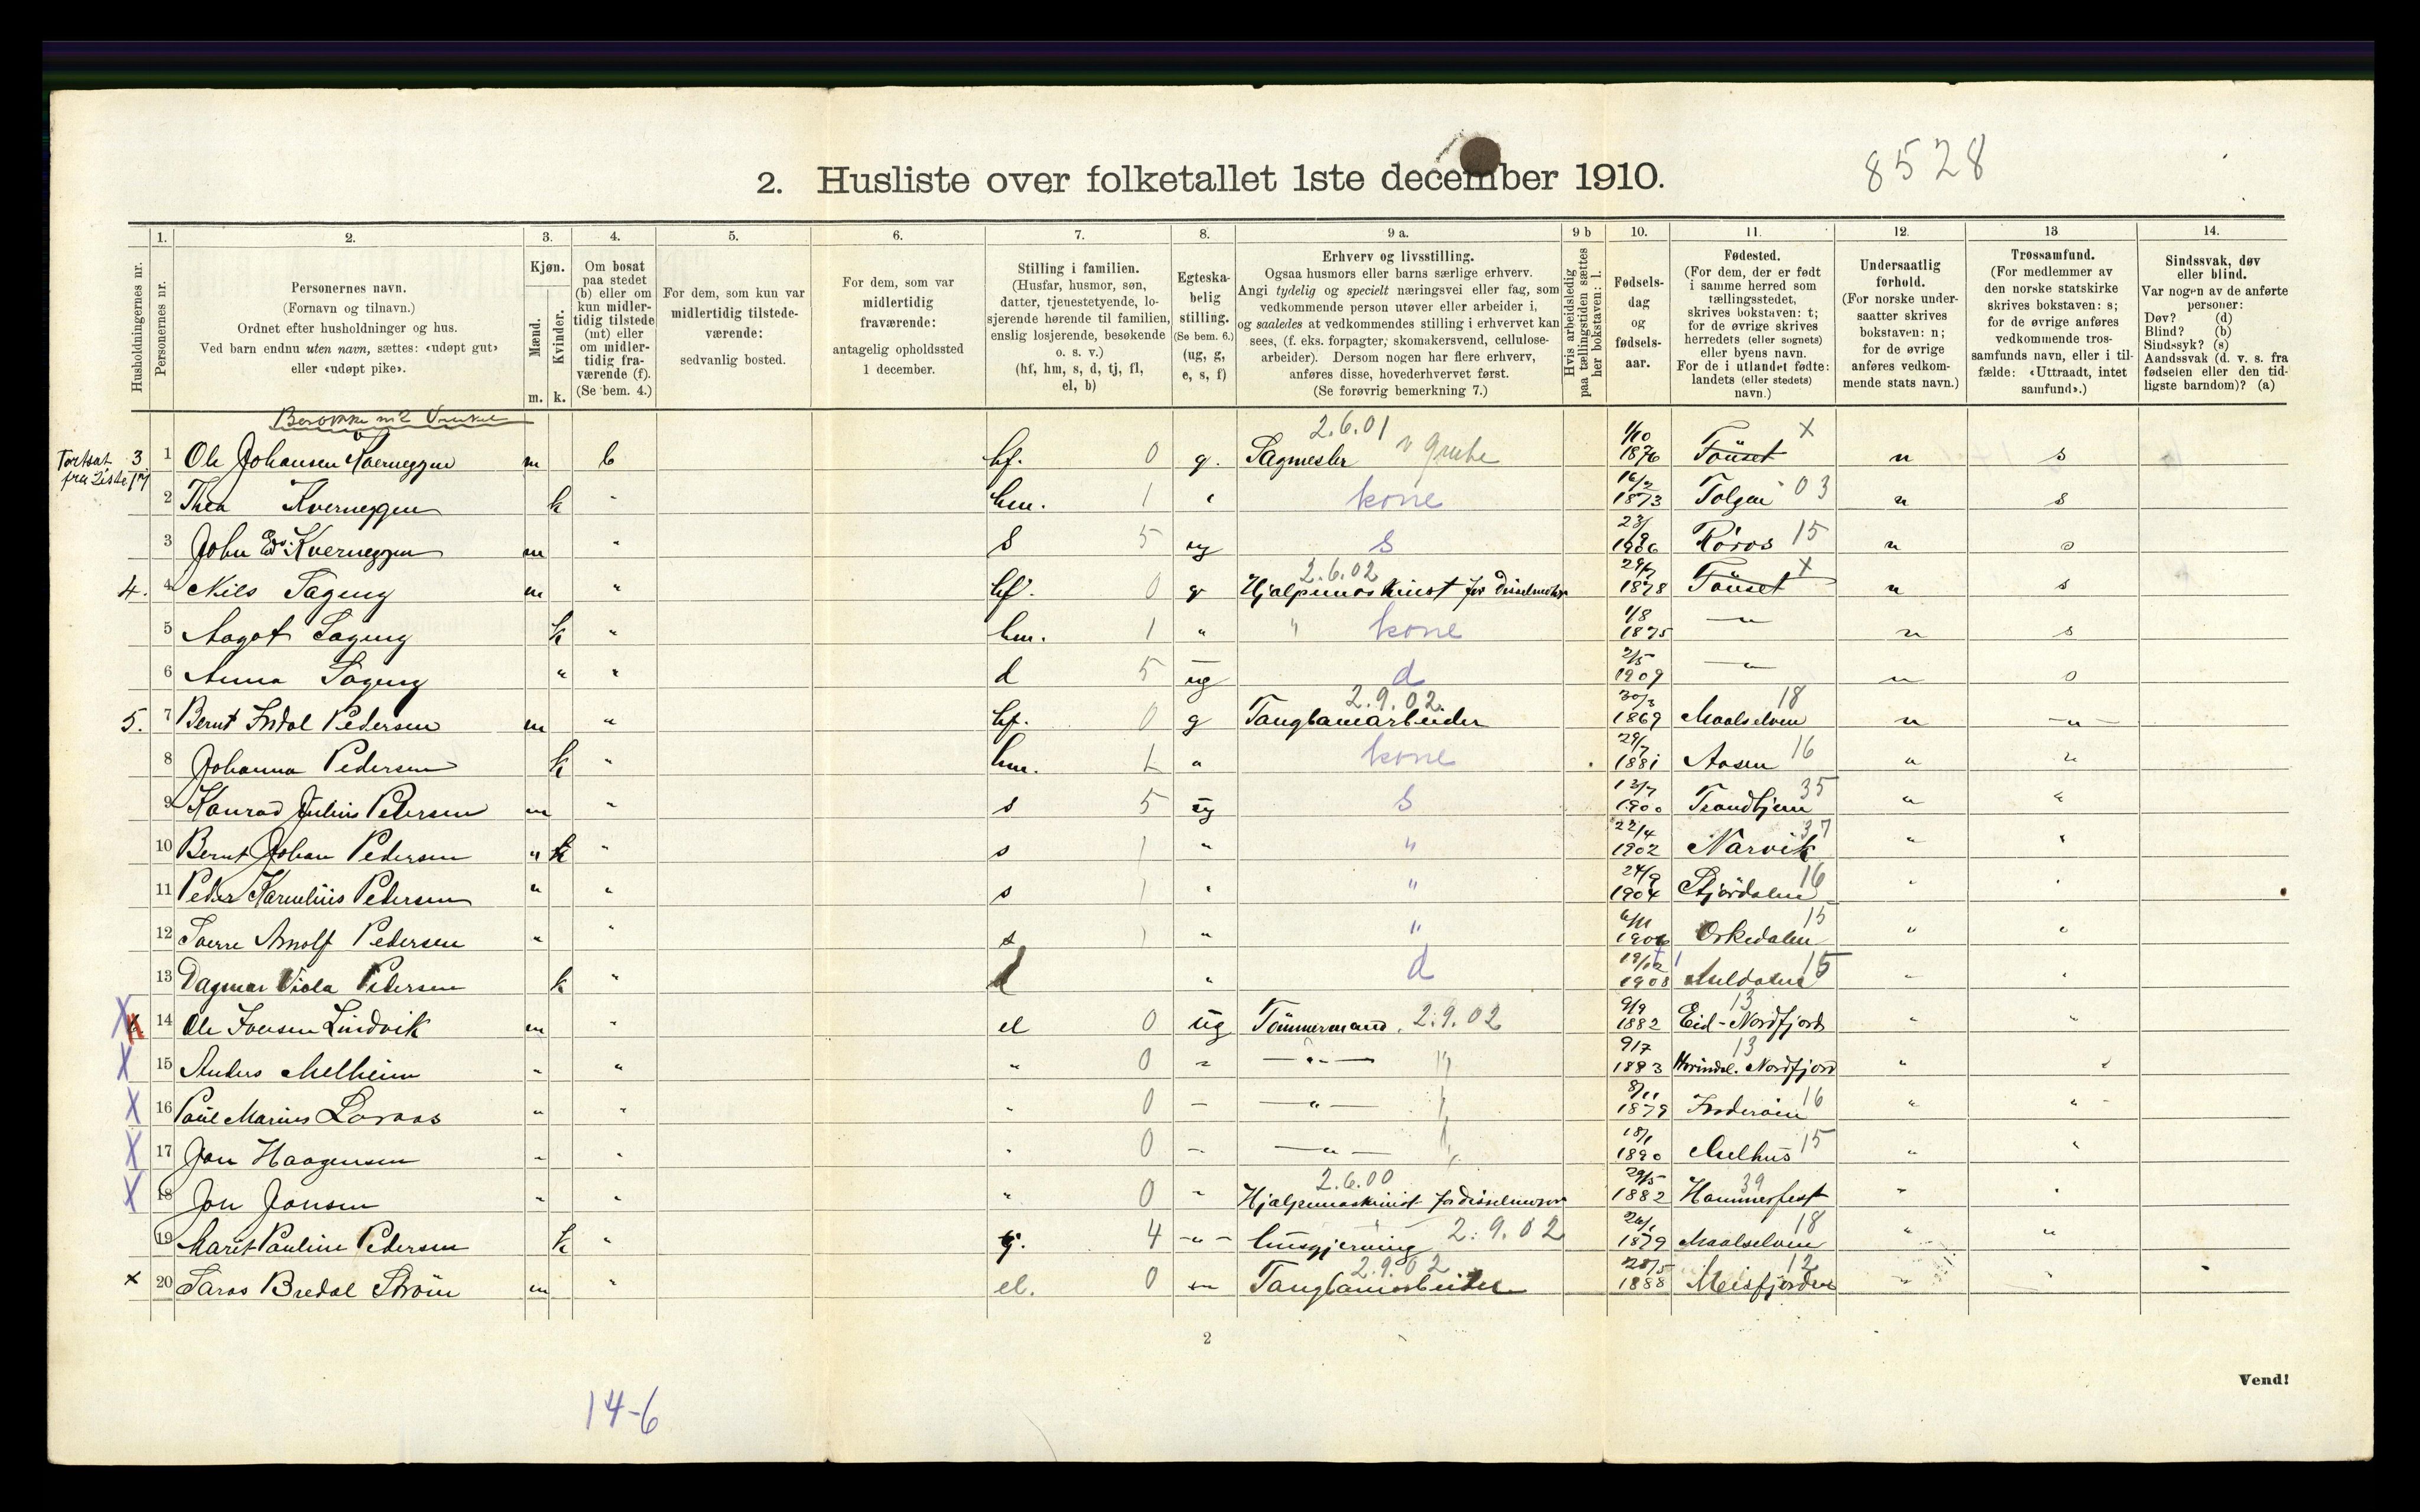 2. Husliste over folketallet 1ste december 1910.
8528
1. 2. 3. 4. 5. 6. 7. 8. 9 a. 9 b 10. 11. 12. 13 14.
Husholdningernes nr.
Personernes nr.
Personernes navn.
(Fornavn og tilnavn.)
Ordnet efter husholdninger og hus.
Ved barn endnu uten navn, sættes: «udøpt gut»
eller «udøpt pike».
Kjøn.
Mænd.
Kvinder.
m. k.
Om bosat
paa stedet
(b) eller om
kun midler-
tidig tilstede
(mt) eller
om midler-
tidig fra-
værende (f).
(Se bem. 4.)
For dem, som kun var
midlertidig tilstede-
værende:
sedvanlig bosted.
For dem, som var
midlertidig
fraværende:
antagelig opholdssted
1 december.
Stilling i familien.
(Husfar, husmor, søn,
datter, tjenestetyende, lo-
sjerende hørende til familien,
enslig losjerende, besøkende
o. s. v.)
(hf, hm, s, d, tj, fl,
el, b)
Egteska-
belig
stilling.
(Se bem. 6.)
(ug, g,
e, s, f)
Erhverv og livsstilling.
Ogsaa husmors eller barns særlige erhverv.
Angi tydelig og specielt næringsvei eller fag, som
vedkommende person utøver eller arbeider i,
og saaledes at vedkommendes stilling i erhvervet kan
sees, (f. eks. forpagter, skomakersvend, cellulose-
arbeider). Dersom nogen har flere erhverv,
anføres disse, hovederhvervet først.
(Se forøvrig bemerkning 7.)
Hvis arbeidsledig
paa tællingstiden sættes
her bokstaven: l.
Fødsels-
dag
og
fødsels-
aar.
Fødested.
(For dem, der er født
i samme herred som
tællingsstedet,
skrives bokstaven: t;
for de øvrige skrives
herredets (eller sognets)
eller byens navn.
For de i utlandet fødte:
landets (eller stedets)
navn.)
Undersaatlig
forhold.
(For norske under-
saatter skrives
bokstaven: n;
for de øvrige
anføres vedkom-
mende stats navn.)
Trossamfund.
(For medlemmer av
den norske statskirke
skrives bokstaven: s;
for de øvrige anføres
vedkommende tros-
samfunds navn, eller i til-
fælde: «Uttraadt, intet
samfund».)
Sindssvak, døv
eller blind.
Var nogen av de anførte
personer:
Døv? (d)
Blind? (b)
Sindssyk? (s)
Aandssvak (d. v. s. fra
fødselen eller den tid-
ligste barndom)? (a)
Fortsat fra Liste 17
3 1 Ole Johansen Kverneggen m b hf. 0 g. Sagmester v grube 2.6.01 1/10 1876 Tönset X n s
2 Thea Kverneggen k " hm. 1 " kone 16/2 1873 Tolgen 03 n s
3 John Edv. Kverneggen m " s 5 ug s 1906 Röros 15 n s
4. 4 Nils Sageng m " hf. 0 g Hjælpemaskinist 2.6.02 29/7 1878 Tönset X n s
5 Aagot Sageng k " hm. 1 " " kone 1/8 1875 — " — n s
6 Anna Sageng " " d 5 ug d 2/5 1909 — " — n s
5. 7 Bernt Indal Pedersen m " hf. 0 g Taugbanearbeider 2.9.02. 30/3 1869 Maalselven 18 n — " —
8 Johanna Pedersen k " hm. 1 " kone 29/7 1881 Aasen 16 " "
9 Konrad Julius Pedersen m " s 5 ug s 13/7 1900 Trondhjem 35 " "
10 Bernt Johan Pedersen " k " s 1 " " 22/4 1902 Narvik 37 " "
11 Peder Kornelius Pedersen " " s 1 " " 24/9 1904 Stjördalen 16 " "
12 Sverre Arnolf Pedersen " " s 1 " " 6/11 1906 Orkedalen 15 " "
13 Dagmar Viola Pedersen k " d " d 19/12 1908 Meldalen 15 " "
X 14 Ole Iversen Lindvik m " el 0 ug Tömmermand 2.9.02 9/9 1882 Eid-Nordfjord 13 " "
X 15 Anders Melheim " " " 0 " — " — " 9/7 1883 Horindal. Nordfjord 13 " "
X 16 Paul Marius " " " 0 — — " — " 8/11 1879 Inderöien 16 " "
X 17 Jon Haagensen " " " 0 — — " — " 18/1 1890 Melhus 15 " "
X 18 Jon Jonsen " " " 0 " Hjælpemaskinist 2.6.00 29/5 1882 Hammerfest 39 " "
19 Marit Pauline Pedersen k " tj. 4 — " — husgjerning 2.9.02 26/1 1879 Maalselven 18 " "
x 20 Bredal Ström m " el. 0 — Taugbanearbeider 2.9.02 28/5 1888 Meisfjorden 12 " "
2
Vend!
14-6